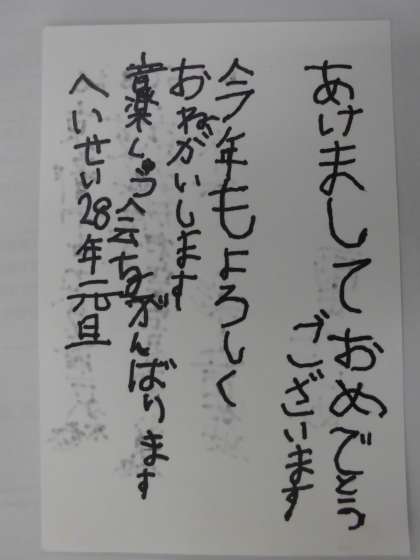 あけましておめでとう
ございます
今年もよろしく
おねがいします
音楽しゅう会もがんばります
へいせい28年元旦